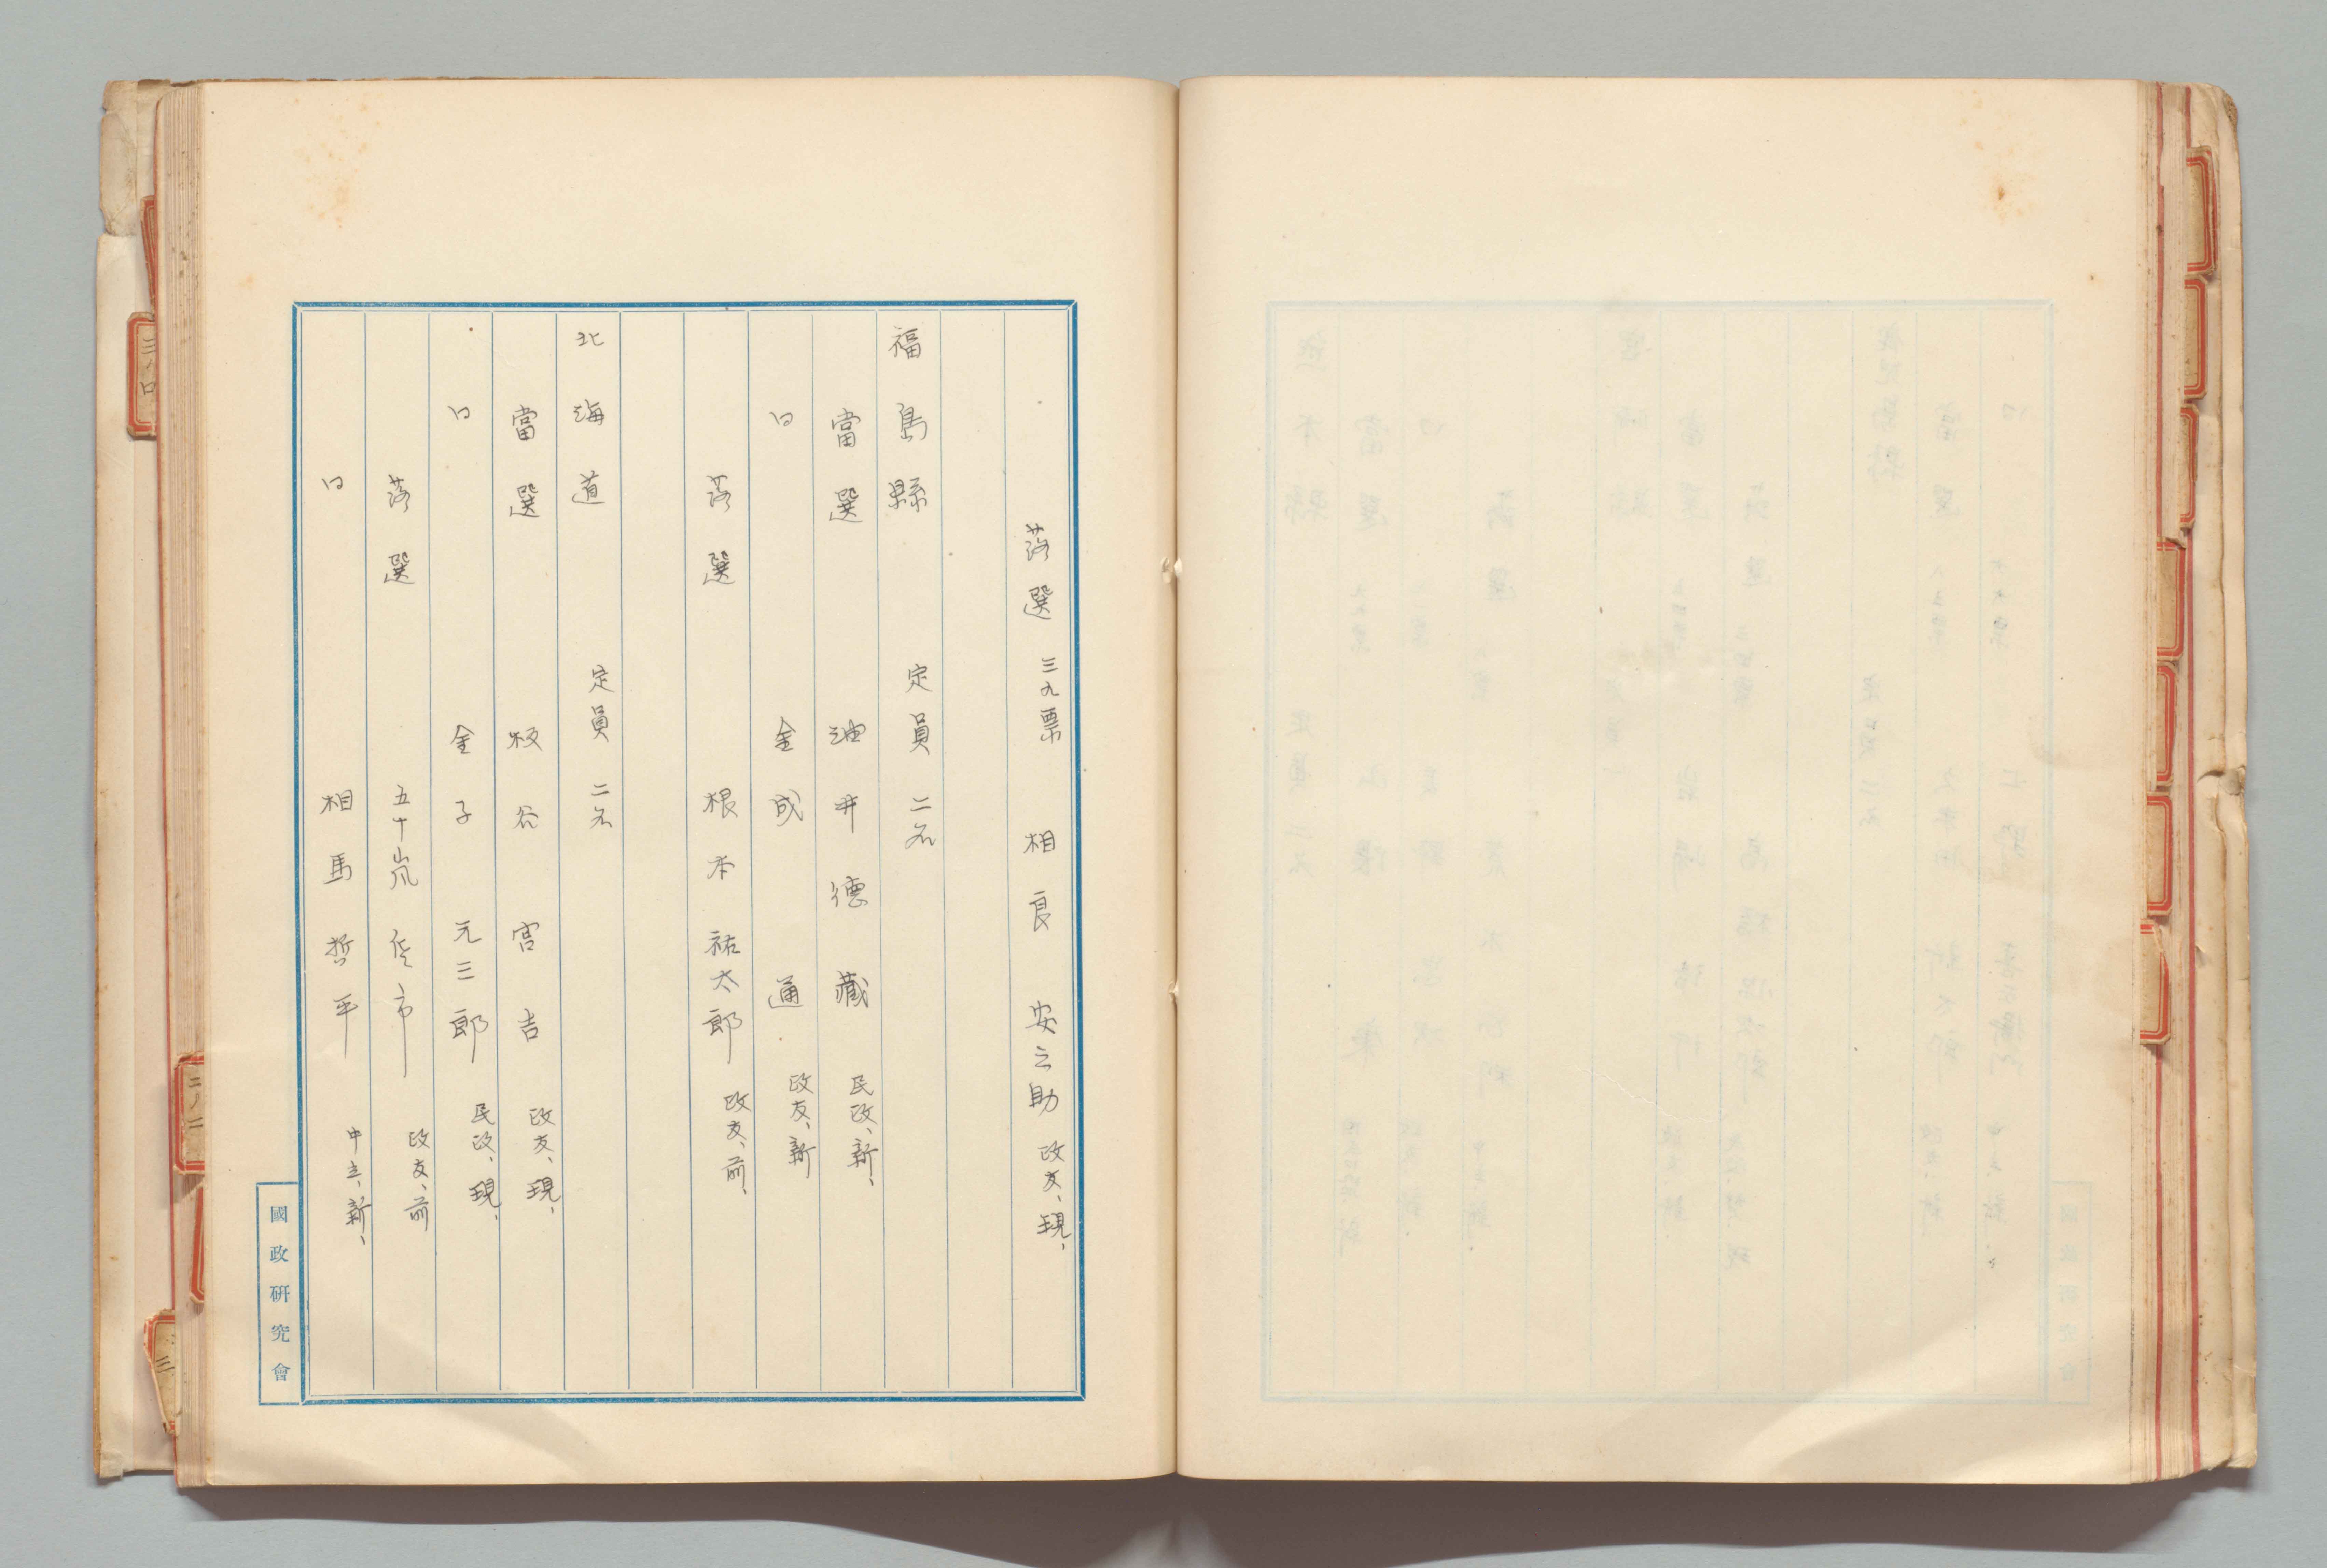 落選 三九票 相良 安之助 政友、現、
福島縣 定員 二名
當選 油井 德藏 民政、新、
〃 金成 通 政友、新
落選 根本 祐太郎 政友、前、
北海道 定員 二名
當選 板谷 宮吉 政友、現、
〃 金子 元三郎 民政、現、
落選 五十嵐 佐市 政友、前
〃 相馬 哲平 中立、新、
國政研究會
三ノ口
二ノ二